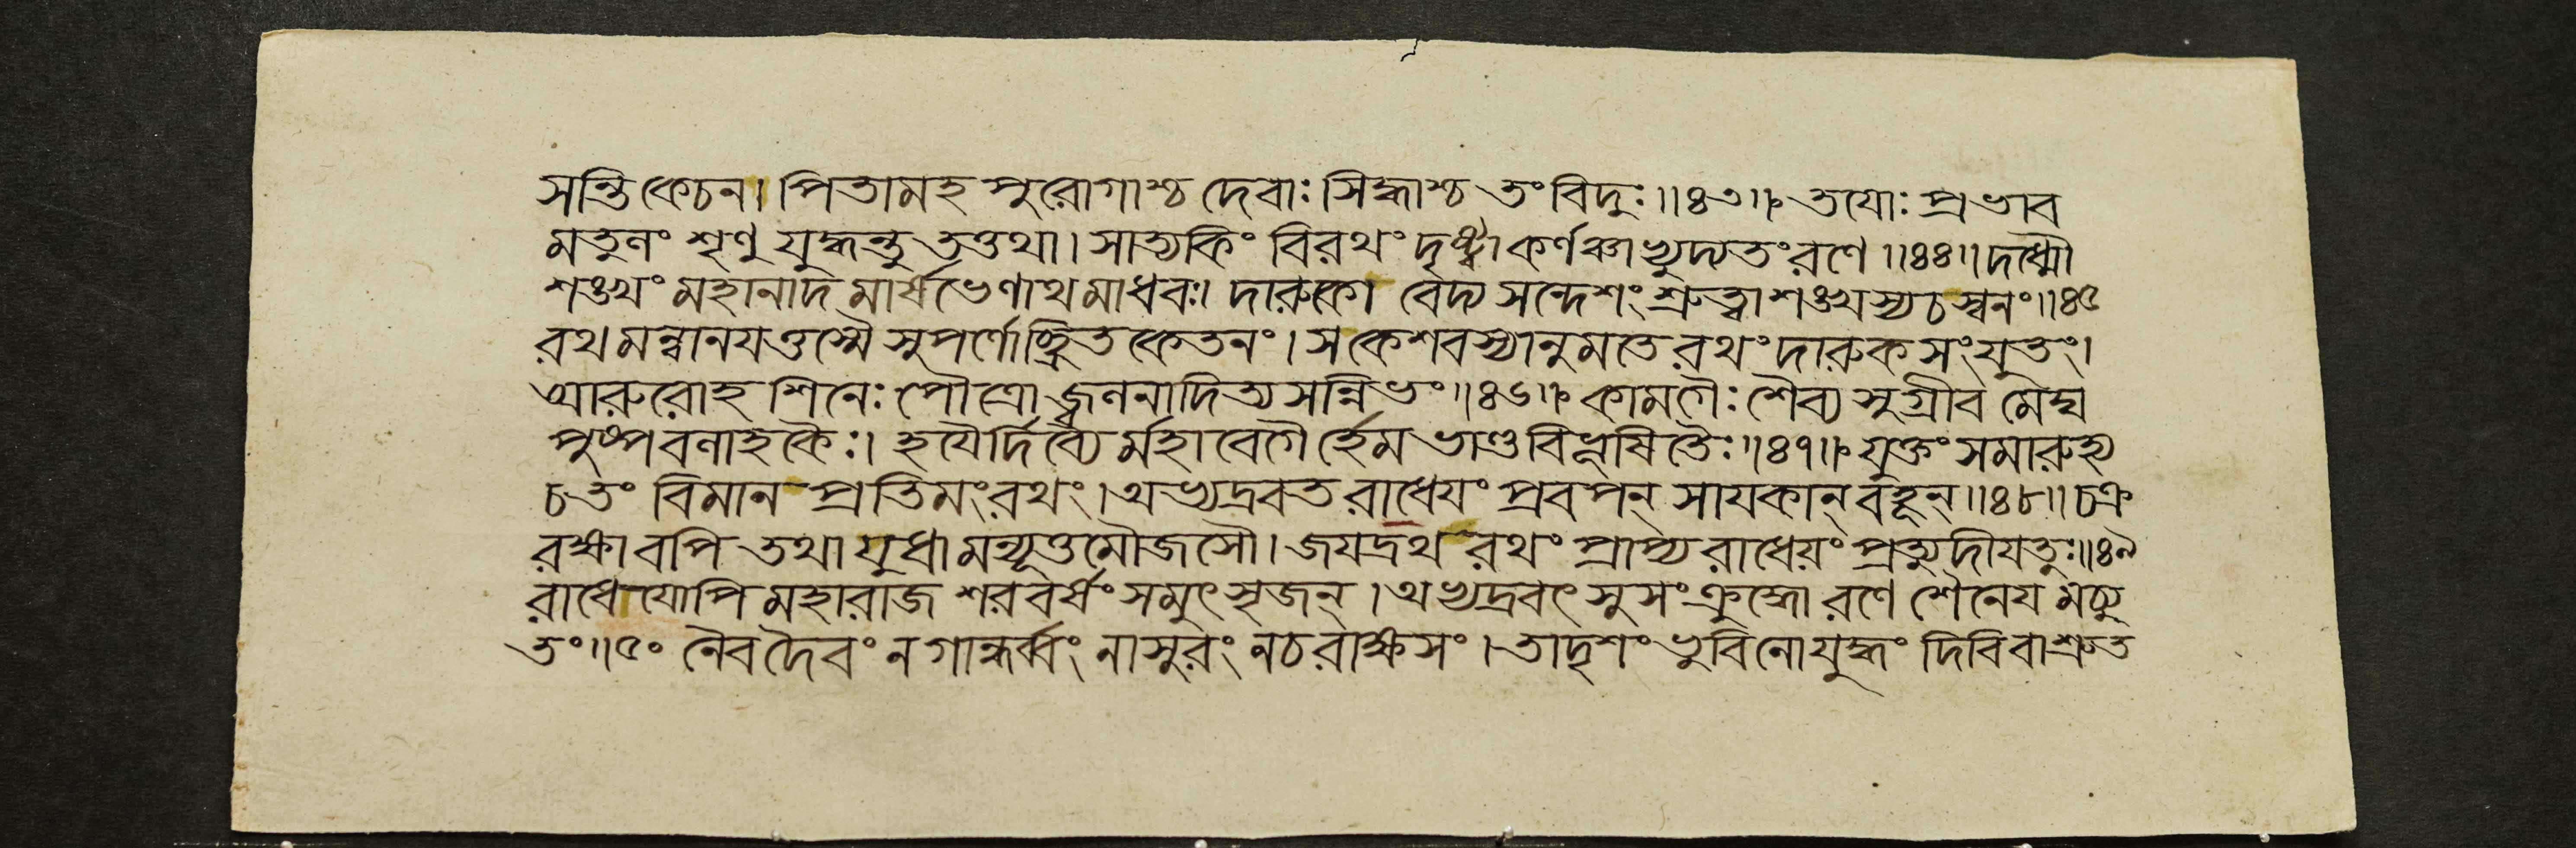 সন্তি কেচন। পিতামহ পুরোগাশ্চ দেবাঃ সিদ্ধাশ্চ তং বিদুঃ॥৪৩॥ তয়োঃ প্রভাব
মতুলং শৃণু যুদ্ধন্তু তত্তথা। সাত্যকিং বিরথং দৃষ্ট্বা কর্ণঞ্চাভ্যুদ্যতং রণে॥৪৪॥ দধ্মৌ
শঙ্খং মহানাদ মার্ষভেণাথ মাধবঃ। দারুকো বেদ্য সন্দেশং শ্রুত্বা শঙ্খস্য চ স্বনং॥৪৫
রথ মন্বানয়ত্তস্মৈ সুপর্ণোচ্ছ্রিত কেতনং। স কেশবস্যানুমতে রথং দারুক সংযুতং।
আরুরোহ শিনেঃ পৌত্রো জ্বলনাদিত্য সন্নিভং॥৪৬॥ কামগৈঃ শৈব্য সুগ্রীব মেঘ
পুষ্প বলাহকৈঃ। হয়ৈর্দিব্যৈ র্মহাবেগৈ র্হেম ভাণ্ড বিভূষিতৈঃ॥৪৭॥ যুক্তং সমারুহ্য
চ তং বিমান প্রতিমং রথং। অভ্যদ্রবত রাধেয়ং প্রবপন্ সায়কান্ বহূন্॥৪৮॥ চক্র
রক্ষাবপি তথা যুধামন্যূত্তমৌজসৌ। জয়দ্রথ রথং প্রাপ্য রাধেয়ং প্রত্যুদীয়তুঃ॥৪৯
রাধেয়োপি মহারাজ শরবর্ষং সমুৎসৃজন্। অভ্যদ্রবৎ সুসংক্রুদ্ধো রণে শৈনেয় মচ্যু
তং॥৫০ নৈব দৈবং ন গান্ধর্ব্বং নাসুরং ন চ রাক্ষসং। তাদৃশং ভুবি নো যুদ্ধং দিবি বা শ্রুত